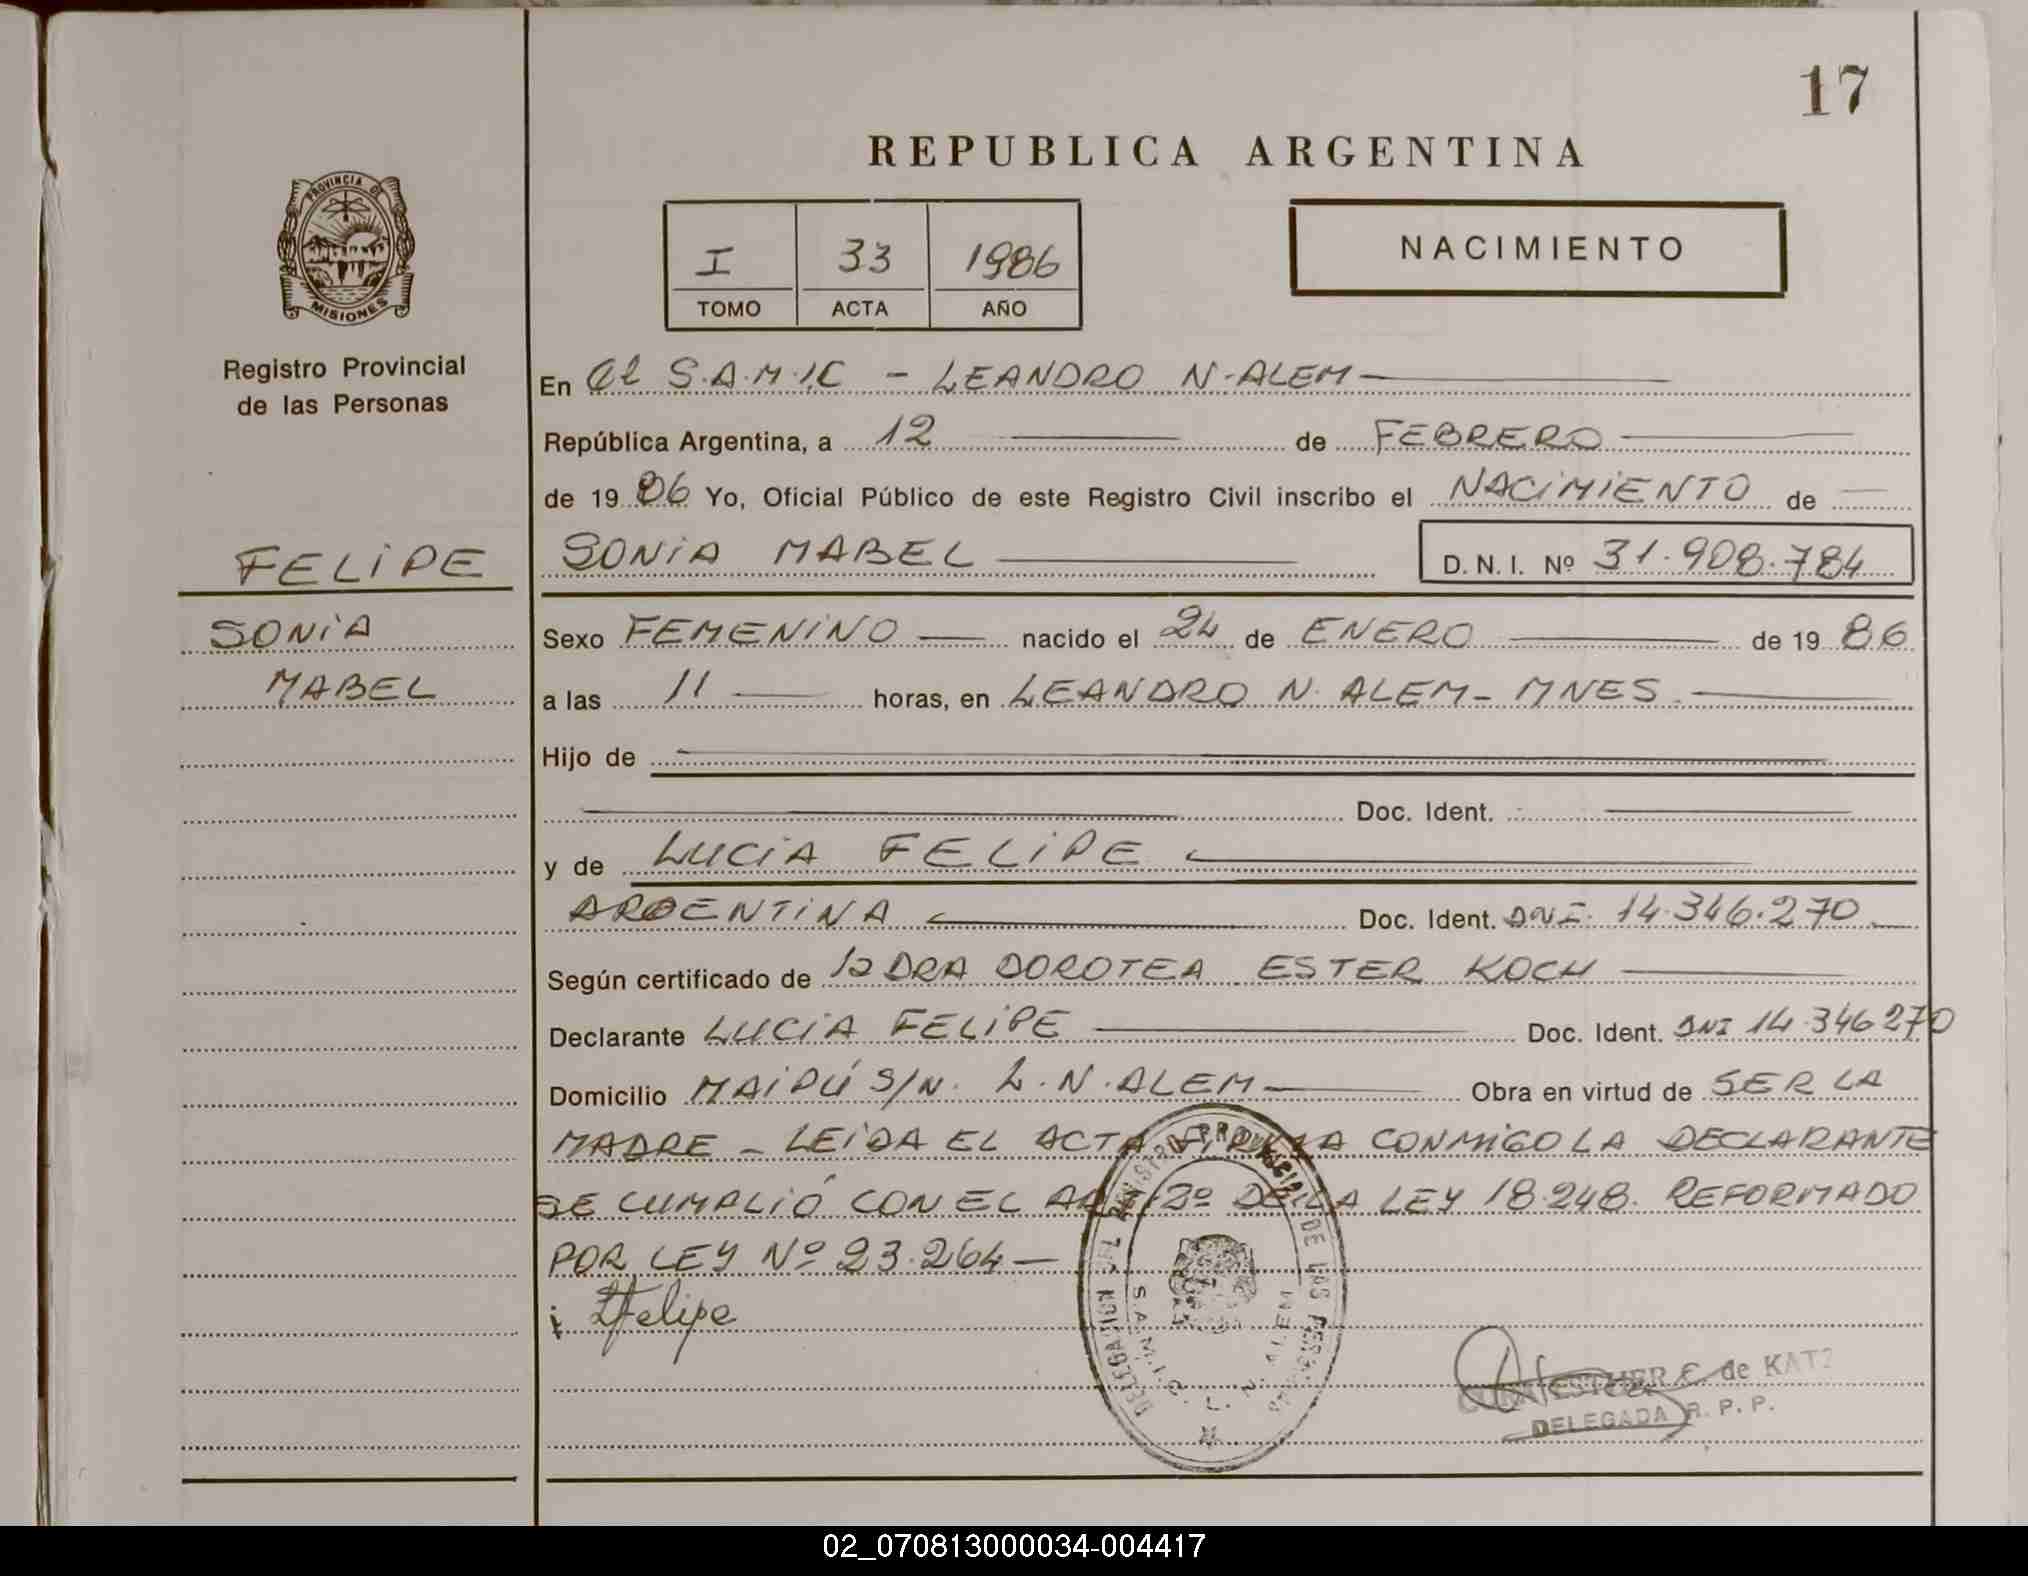 17
REPUBLICA ARGENTINA
PROVINCIA DE
MISIONES
I 33 1986
TOMO ACTA AÑO
NACIMIENTO
Registro Provincial
de las Personas
En el S.A.M.I.C - LEANDRO N. ALEM
República Argentina, a 12 de FEBRERO
de 19 86 Yo, Oficial Público de este Registro Civil inscribo el NACIMIENTO de
FELIPE
SONIA MABEL D. N. I. Nº 31.908.784
SONIA
MABEL
Sexo FEMENINO nacido el 24 de ENERO de 19 86
a las 11 horas, en LEANDRO N. ALEM - MNES.
Hijo de
Doc. Ident.
y de LUCIA FELIPE
ARGENTINA Doc. Ident. DNI. 14.346.270
Según certificado de la DRA DOROTEA ESTER KOCH
Declarante LUCIA FELIPE Doc. Ident. DNI 14.346270
Domicilio MAIPÚ S/N. L.N.ALEM Obra en virtud de SER LA
MADRE - LEIDA EL ACTA FIRMA CONMIGO LA DECLARANTE
SE CUMPLIÓ CON EL ART 2º DE LA LEY 18.248. REFORMADO
POR LEY Nº 23.264 -
LFelipe
DELEGACION DEL REGISTRO PROVINCIAL DE LAS PERSONAS
S.A.M.I.C. L. N. ALEM
ESTHER E. de KATZ
DELEGADA R. P. P.
02_070813000034-004417